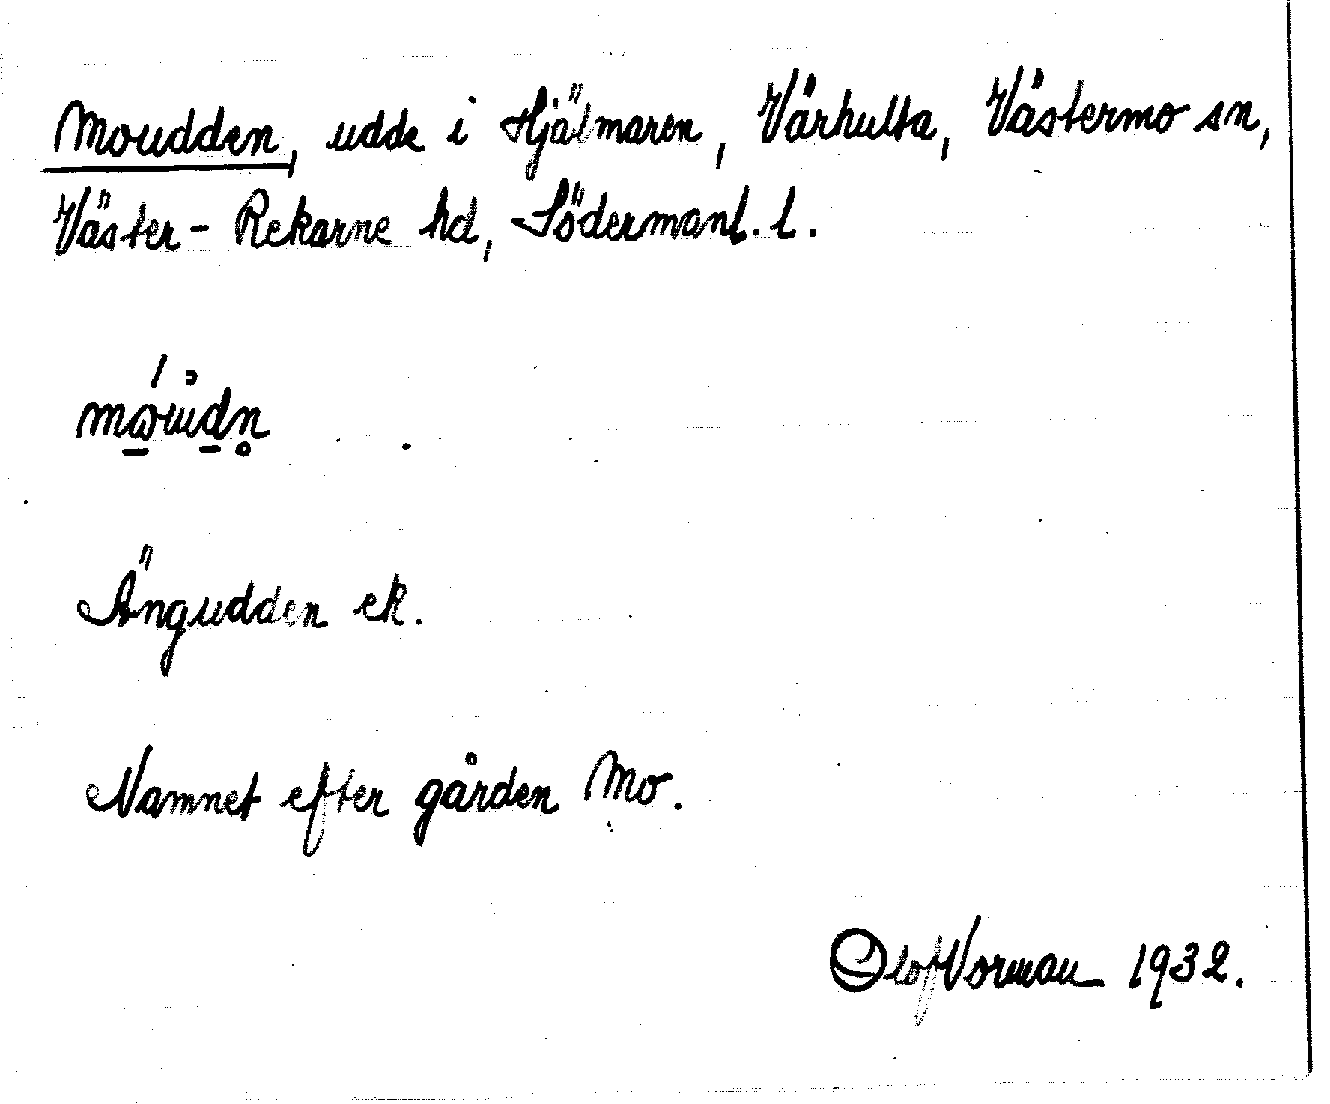 Moudden, udde i Hjälmaren, Vårhulta, Västermo sn,
Väster-Rekarne hd, Södermanl. l.
Ängudden ek.
Namnet efter gården Mo.
Olof Norman 1932.